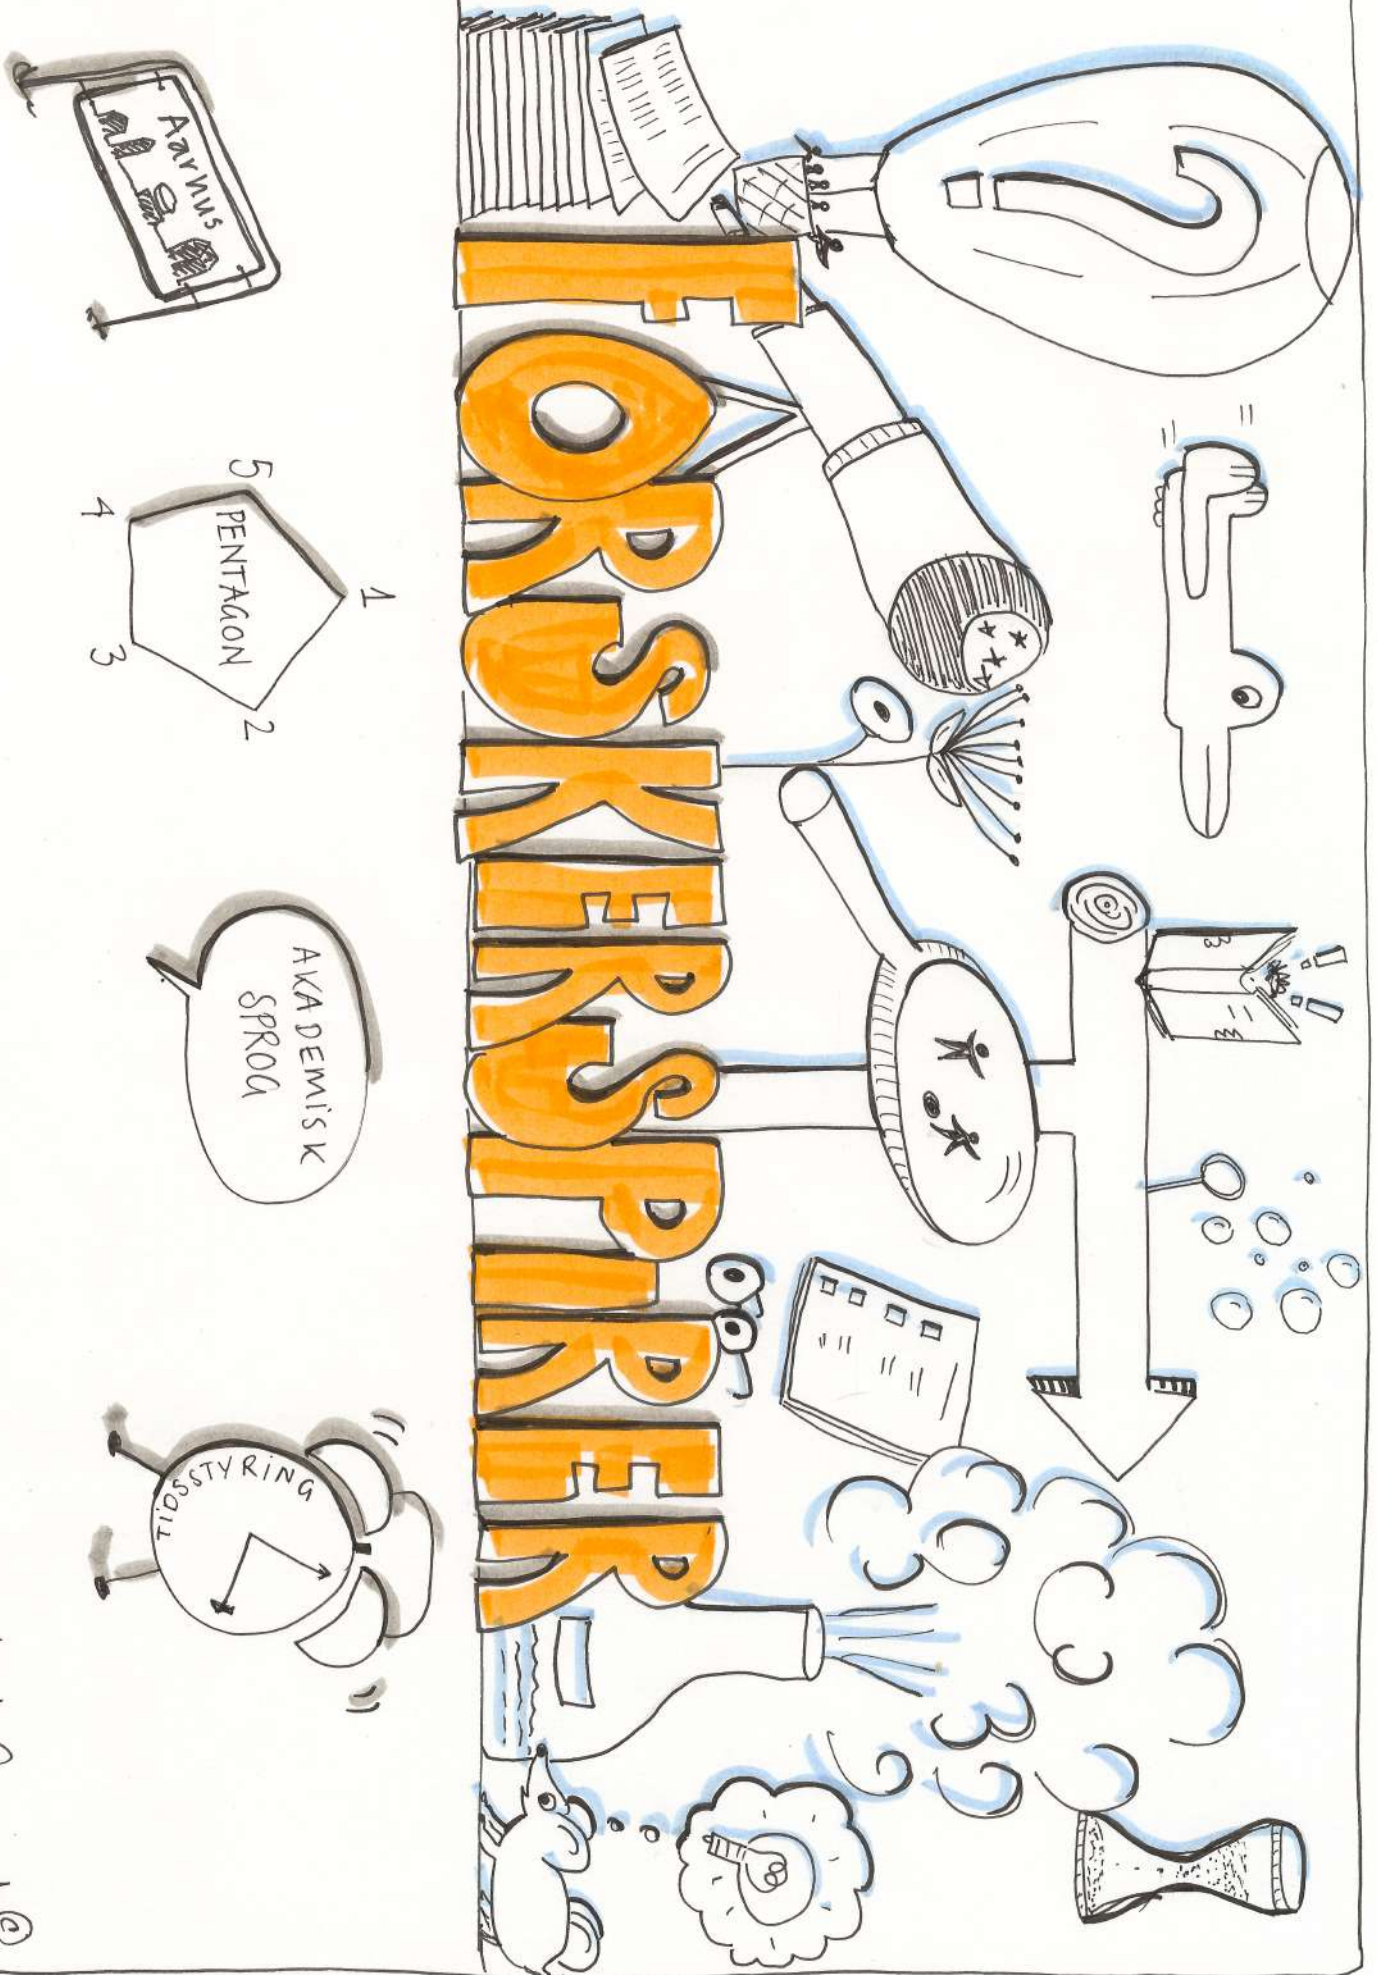 ?
FORSKERSPIRER
Aarhus
1
5
PENTAGON
2
4
3
AKADEMISK
SPROG
TIDSSTYRING